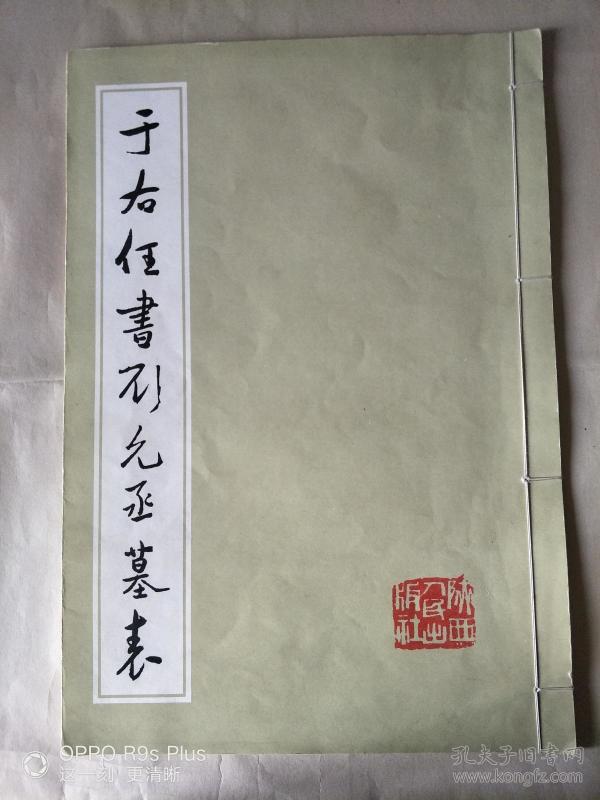 于右任書劉允丞墓表
陝西
人民出
版社
OPPO R9s Plus
这一刻 更清晰
孔夫子旧书网
www.kongfz.com